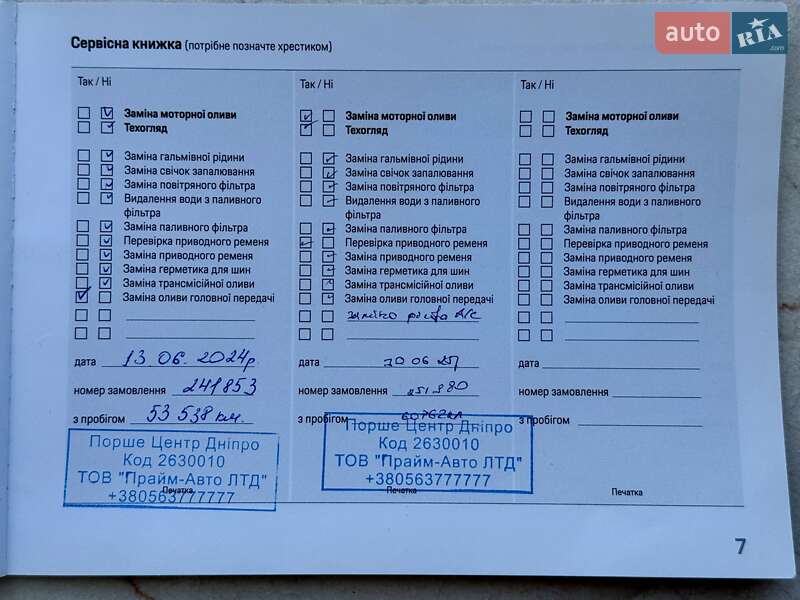 auto RIA.com
Сервісна книжка (потрібне позначте хрестиком)
Так / Ні
Заміна моторної оливи
Техогляд
Заміна гальмівної рідини
Заміна свічок запалювання
Заміна повітряного фільтра
Видалення води з паливного
фільтра
Заміна паливного фільтра
Перевірка приводного ременя
Заміна приводного ременя
Заміна герметика для шин
Заміна трансмісійної оливи
Заміна оливи головної передачі
дата 13.06.2024р.
номер замовлення 241853
з пробігом 53 538 км.
Порше Центр Дніпро
Код 2630010
ТОВ "Прайм-Авто ЛТД"
Печатка
+380563777777
Так / Ні
Заміна моторної оливи
Техогляд
Заміна гальмівної рідини
Заміна свічок запалювання
Заміна повітряного фільтра
Видалення води з паливного
фільтра
Заміна паливного фільтра
Перевірка приводного ременя
Заміна приводного ременя
Заміна герметика для шин
Заміна трансмісійної оливи
Заміна оливи головної передачі
дата
номер замовлення
з пробігом
Порше Центр Дніпро
Код 2630010
ТОВ "Прайм-Авто ЛТД"
+380563777777
Печатка
Так / Ні
Заміна моторної оливи
Техогляд
Заміна гальмівної рідини
Заміна свічок запалювання
Заміна повітряного фільтра
Видалення води з паливного
фільтра
Заміна паливного фільтра
Перевірка приводного ременя
Заміна приводного ременя
Заміна герметика для шин
Заміна трансмісійної оливи
Заміна оливи головної передачі
дата
номер замовлення
з пробігом
Печатка
7